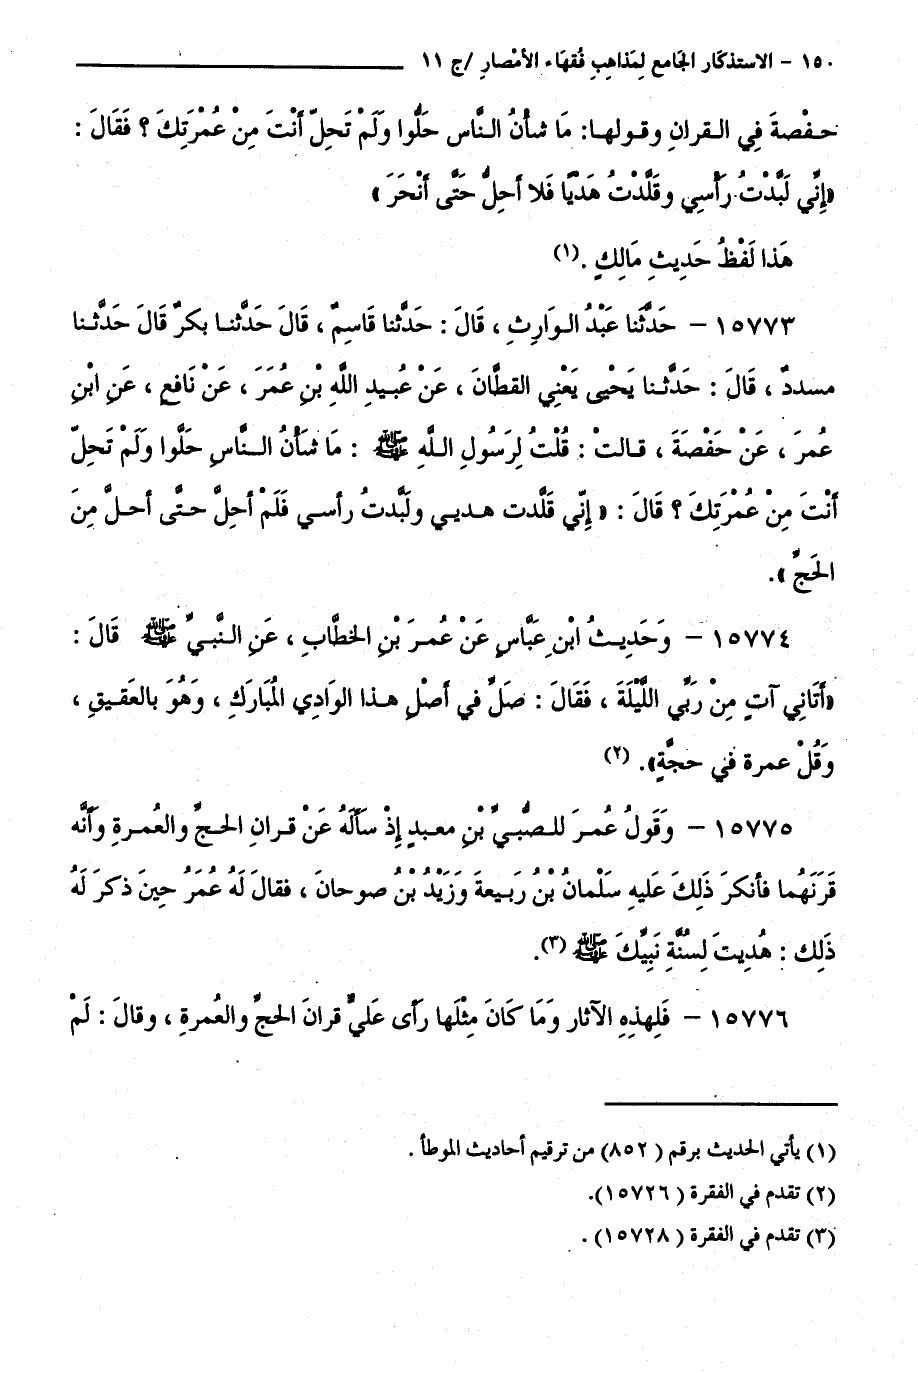 ١٥٠ - الاستذكار الجامع لِمَذاهِبِ فُقهَاء الأمْصارِ /ج ١١
حفْصةَ فِي القرانِ وقولها: مَا شأنُ النَّاس حَلُّوا وَلَمْ تَحِلّ أَنْتَ مِنْ عُمْرَتِكَ ؟ فَقَالَ :
«إِنِّي لَبَّدْتُ رَأْسِي وقَلَّدْتُ هَدْيًا فَلا أحِلُّ حَتَّى أَنْحَرَ »
هَذا لَفْظُ حَدِيثِ مَالِكٍ .(١)
١٥٧٧٣ - حَدَّثَنا عَبْدُ الوَارِثِ ، قَالَ : حَدَّثنا قَاسِمٌ ، قَالَ حَدَّثَنا بكرٌ قَالَ حَدَّثنا
مسددٌ ، قَالَ : حَدَّثنا يَحْيى يَعْنِي القطَّانَ ، عَنْ عُبيدِ اللَّهِ بْنِ عُمَرَ ، عَنْ نَافعٍ ، عَنِ ابْنِ
عُمرَ ، عَنْ حَفْصَةَ ، قالتْ : قُلْتُ لِرَسُولِ اللَّهِ ﷺ : مَا شَأْنُ النَّاسِ حَلُّوا وَلَمْ تَحِلّ
أَنْتَ مِنْ عُمْرَتِكَ ؟ قَالَ : « إِنّي قَلَّدت هديي ولَبَّدتُ رأسي فَلَمْ أحِلَّ حتَّى أحلَّ مِنَ
الحَجِّ ».
١٥٧٧٤ - وَحَدِيثُ ابْنِ عَبَّاسٍ عَنْ عُمرَ بْنِ الخطَّابِ ، عَنِ النَّبيِّ ﷺ قَالَ :
«أَتَانِي آتٍ مِنْ رَبِّي اللَّيْلَةَ ، فَقَالَ : صَلِّ في أَصْلِ هذا الوَادِي المُبَارَكِ ، وَهُوَ بالعَقيقِ ،
وَقُلْ عمرة في حجَّةٍ». (٢)
١٥٧٧٥ - وَقَولُ عُمرَ للصُّبيِّ بْنِ معبدٍ إذْ سَأَلَهُ عَنْ قرانِ الحجِّ والعُمرةِ وأَنَّه
قَرَنَهُما فأنكرَ ذَلِكَ عَليهِ سَلْمانُ بْنُ رَبيعةَ وَزَيْدُ بْنُ صوحانَ ، فقالَ لَهُ عُمَرُ حِينَ ذكرَ لَهُ
ذَلِك : هُدِيتَ لِسُنَّةِ نَبِيِّكَ ﷺ (٣).
١٥٧٧٦ - فَلِهذِهِ الآثار وَمَا كَانَ مِثْلَها رَأى عَليٌّ قرانَ الحجِّ والعُمرةِ ، وقالَ : لَمْ
(١) يأتي الحديث برقم ( ٨٥٢) من ترقيم أحاديث الموطأ .
(٢) تقدم في الفقرة ( ١٥٧٢٦).
(٣) تقدم في الفقرة ( ١٥٧٢٨) .